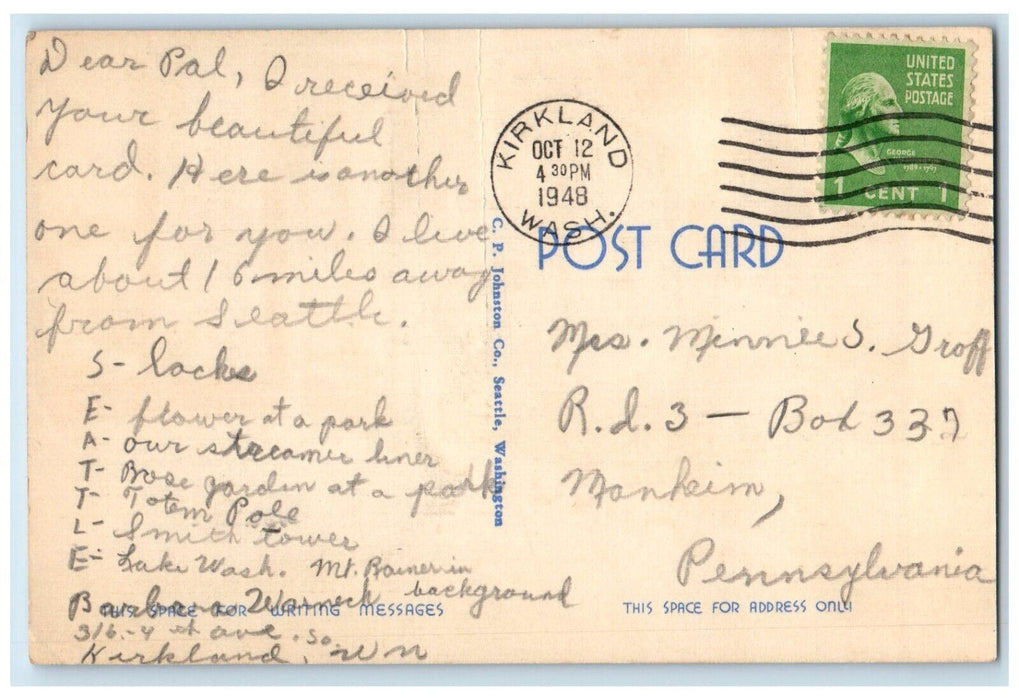 Dear Pal, I received
your beautiful
card. Here is another
one for you. I live
about 16 miles away
from Seattle.
S- locks
E- flower at a park
A- our streamer liner
T- Rose garden at a park
T- Totem Pole
L- Smith tower
E- Lake Wash. Mt. Rainer in
background
Barbara
316-4th ave. So.
Kirkland, Wn
THIS SPACE FOR WRITING MESSAGES
C. P. Johnston Co., Seattle, Washington
KIRKLAND
OCT 12
4 30 PM
1948
WASH.
UNITED
STATES
POSTAGE
GEORGE
1 CENT 1
POST CARD
Mrs. Minnie S. Groff
R.d. 3 — Box 337
Manheim,
Pennsylvania
THIS SPACE FOR ADDRESS ONLY